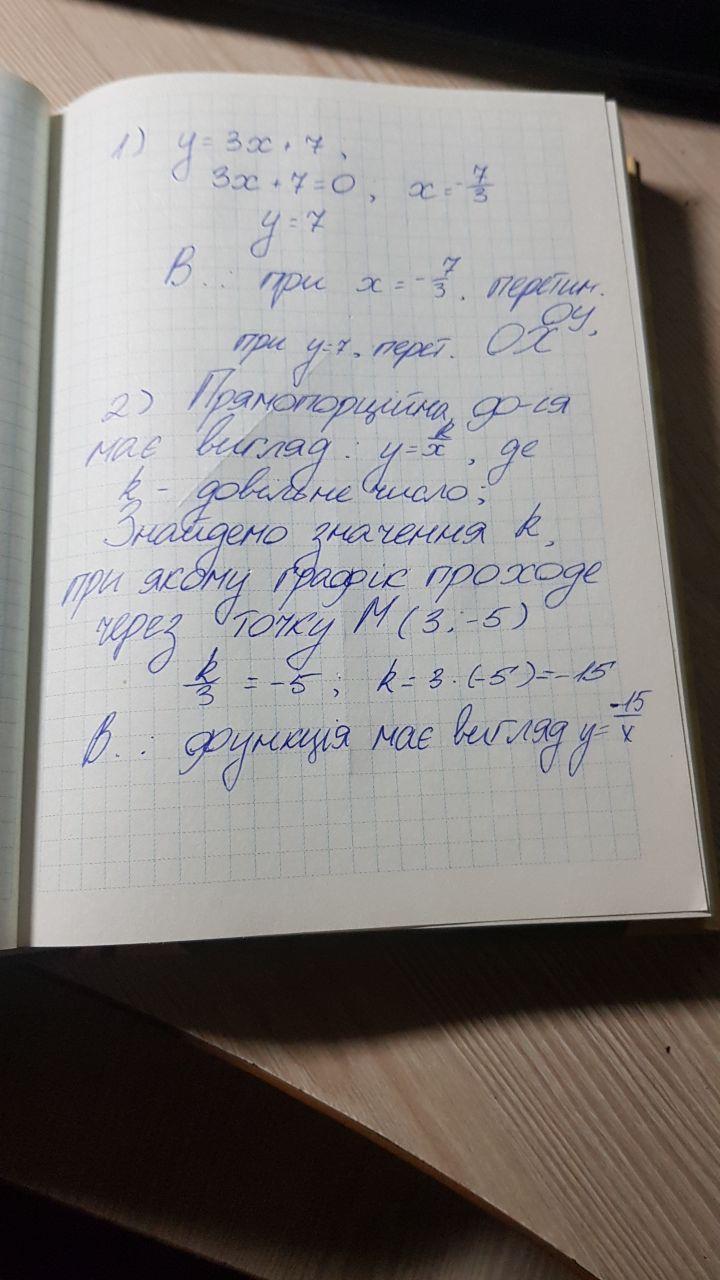 1) y = 3x + 7;
3x + 7 = 0; x = -7/3
y = 7
В.: при x = -7/3, перетин. OY,
при y=7, перет. OX
2) Прямопорційна ф-ія
має вигляд: y = k/x, де
k - довільне число;
Знайдемо значення k,
при якому графік проходе
через точку M (3; -5)
k/3 = -5; k = 3 · (-5) = -15
В.: функція має вигляд y = -15/x